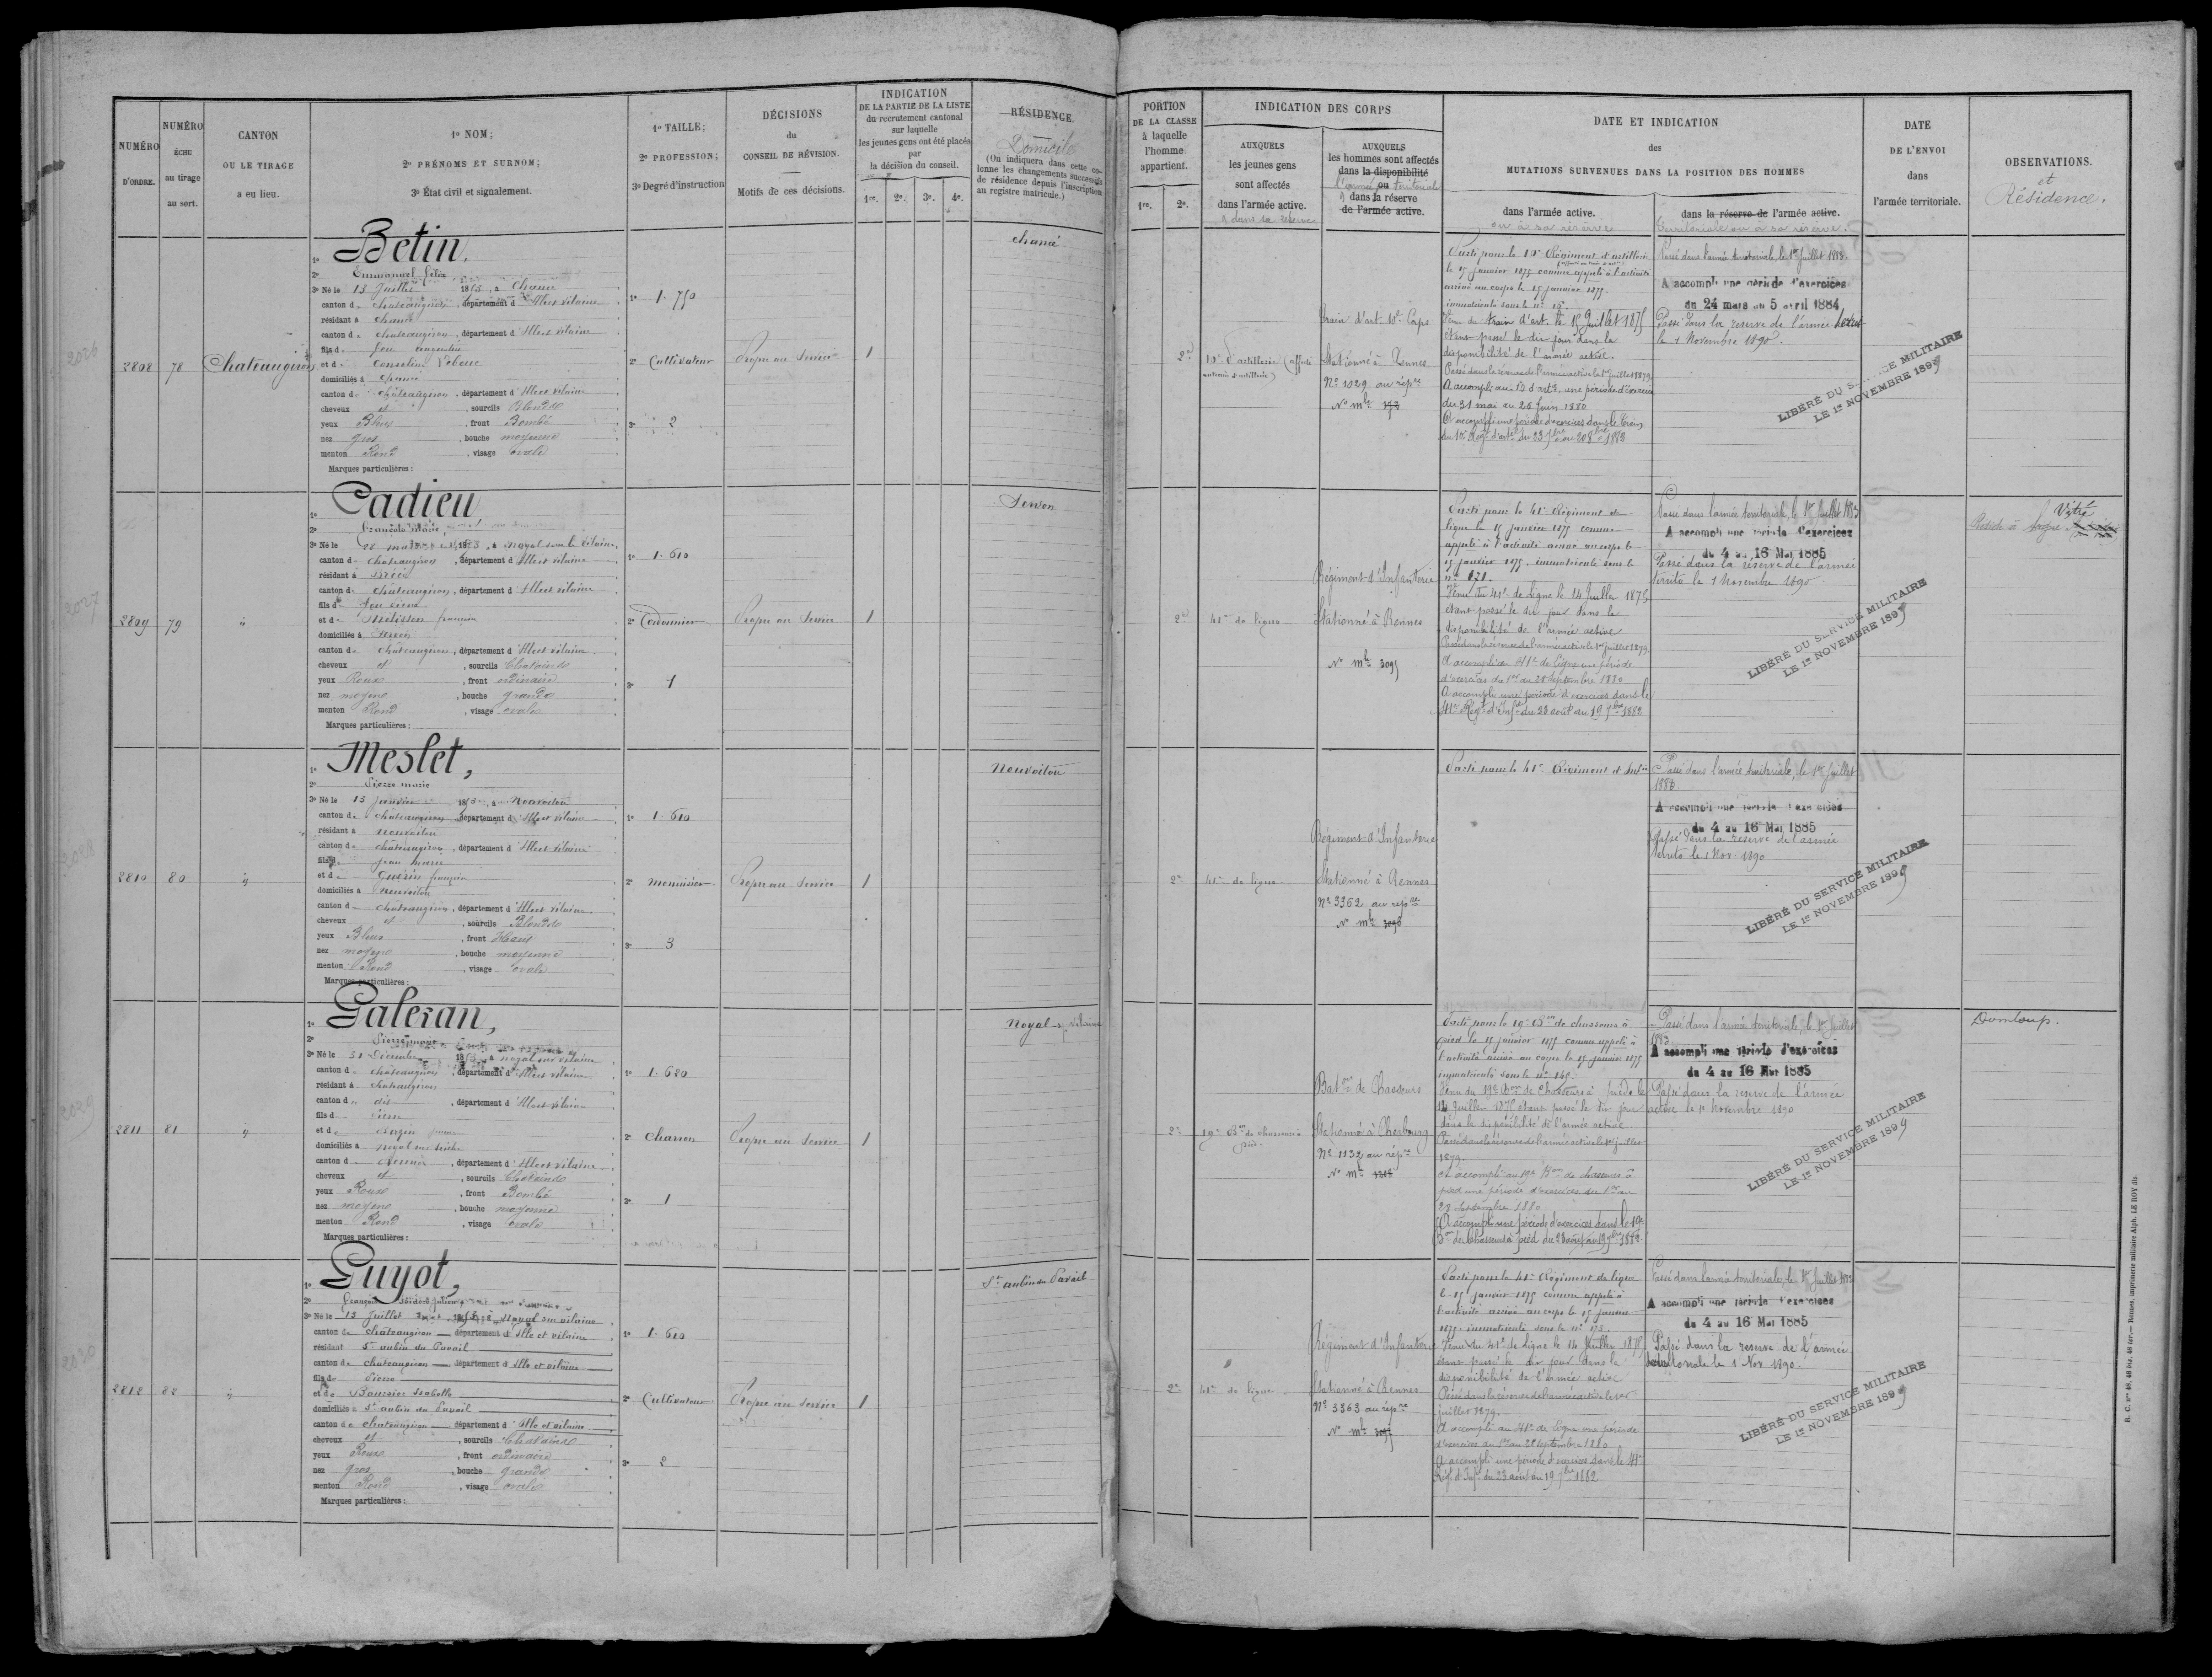 NUMÉRO
D'ORDRE.
NUMÉRO
ÉCHU
au tirage
au sort.
CANTON
OU LE TIRAGE
a eu lieu.
1º NOM;
2º PRÉNOMS ET SURNOM;
3º État civil et signalement.
1º TAILLE;
2º PROFESSION;
3º Degré d'instruction
DÉCISIONS
du
CONSEIL DE RÉVISION.
Motifs de ces décisions.
INDICATION
DE LA PARTIE DE LA LISTE
du recrutement cantonal
sur laquelle
les jeunes gens ont été placés
par
la décision du conseil.
1re. 2e. 3e. 4e.
RÉSIDENCE
Domicile
(On indiquera dans cette co-
lonne les changements successifs
de résidence depuis l'inscription
au registre matricule.)
2808 78 Chateaugiron
1º Betin,
2º Emmanuel
3º Né le 13 Juillet 1853, à Chancé
canton de chateaugiron, département d'Ille et vilaine
résidant à chancé
canton de chateaugiron, département d'Ille et vilaine
fils de feu
et de
domiciliés à chancé
canton de châteaugiron, département d'Ille et vilaine
cheveux et, sourcils Blonds
yeux Bleus, front Bombé
nez gros, bouche moyenne
menton Rond, visage ovale
Marques particulières :
1º 1.750
2º Cultivateur
3º 2
Propre au Service
1
chancé
2809 79 "
1º Cadieu
2º François Marie
3º Né le 28 mai 1853, à Noyal sur Vilaine
canton de chateaugiron, département d'Ille et vilaine
résidant à
canton de chateaugiron, département d'Ille et vilaine
fils de feu Pierre
et de Melisson
domiciliés à Servon
canton de chateaugiron, département d'Ille et vilaine
cheveux et, sourcils Chatains
yeux Roux, front ordinaire
nez moyen, bouche grande
menton Rond, visage ovale
Marques particulières :
1º 1.610
2º Cordonnier
3º 1
Propre au Service
1
Servon
2810 80 "
1º Meslet,
2º Pierre marie
3º Né le 13 janvier 1853, à Nouvoitou
canton de châteaugiron, département d'Ille et vilaine
résidant à nouvoitou
canton de châteaugiron, département d'Ille et vilaine
fils de jean marie
et de Guérin
domiciliés à nouvoitou
canton de châteaugiron, département d'Ille et vilaine
cheveux et, sourcils Blonds
yeux Bleus, front Haut
nez moyen, bouche moyenne
menton Rond, visage ovale
Marques particulières :
1º 1.610
2º menuisier
3º 3
Propre au Service
1
Nouvoitou
2811 81 "
1º Galeran,
2º Pierre marie
3º Né le 31 Décembre 1853, à noyal sur vilaine
canton de châteaugiron, département d'Ille et vilaine
résidant à chateaugiron
canton de dit, département d'Ille et vilaine
fils de Pierre
et de
domiciliés à
canton de, département d'Ille et vilaine
cheveux et, sourcils Chatains
yeux Roux, front Bombé
nez moyen, bouche moyenne
menton Rond, visage ovale
Marques particulières :
1º 1.620
2º Charron
3º 1
Propre au Service
1
Noyal s/ vilaine
2812 82 "
1º Guyot,
2º François Isidore Julien
3º Né le 13 Juillet 1853, à Noyal sur vilaine
canton de châteaugiron département d'Ille et vilaine
résidant St aubin du Pavail
canton de chateaugiron département d'Ille et vilaine
fils de Pierre
et de Isabelle
domiciliés à St aubin du Pavail
canton de chateaugiron département d'Ille et vilaine
cheveux et, sourcils Chatains
yeux Roux, front ordinaire
nez gros, bouche grande
menton Rond, visage ovale
Marques particulières :
1º 1.610
2º Cultivateur
3º 2
Propre au Service
1
St aubin du Pavail
PORTION
DE LA CLASSE
à laquelle
l'homme
appartient.
1re. 2e.
INDICATION DES CORPS
AUXQUELS
les jeunes gens
sont affectés
dans l'armée active.
& dans sa réserve
AUXQUELS
les hommes sont affectés
dans la disponibilité
ou
l'armée territoriale
& dans la réserve
de l'armée active.
DATE ET INDICATION
des
MUTATIONS SURVENUES DANS LA POSITION DES HOMMES
dans l'armée active.
ou à sa réserve
dans la réserve de l'armée active.
territoriale ou à sa réserve.
DATE
DE L'ENVOI
dans
l'armée territoriale.
OBSERVATIONS.
et
Résidence.
2e
10e d'artillerie (affecté
au train d'artillerie)
Train d'art. 10e Corps
Stationné à Rennes
Nº 1029 au répre
Nº mle
Parti pour le 10e Régiment d'artillerie
le 15 janvier 1875 comme appelé à l'activité
arrivé au corps le 15 janvier 1875.
immatriculé sous le nº 15.
Venu du train d'art. le 15 Juillet 1875
étant passé le dit jour dans la
disponibilité de l'armée active.
Passé dans la réserve de l'armée active le 1er juillet 1879
A accompli au 10 d'artie une période d'exercices
du 31 mai au 25 Juin 1880
A accompli une période d'exercices dans le train
Passé dans l'armée territoriale, le 1er Juillet 1883.
A accompli une période d'exercices
du 24 mars au 5 avril 1884
Passé dans la réserve de l'armée territ
le 1 Novembre 1890.
LIBÉRÉ DU SERVICE MILITAIRE
LE 1er NOVEMBRE 1899
2e
41e de ligne
Régiment d'Infanterie
Stationné à Rennes
Nº mle 3095
Parti pour le 41e Régiment de
ligne le 15 janvier 1875 comme
appelé à l'activité arrivé au corps le
15 janvier 1875. immatriculé sous le
nº 171.
Venu du 41e de ligne le 14 Juillet 1875
étant passé le dit jour dans la
disponibilité de l'armée active
Passé dans la réserve de l'armée active le 1er juillet 1879
A accompli au 41e de Ligne une période
d'exercices du 1er au 28 Septembre 1880
A accompli une période d'exercices dans le
41e Régt d'Infie du 23 août au 19 7bre 1882
Passé dans l'armée territoriale, le 1er Juillet 1883
A accompli une période d'exercices
du 4 au 16 Mai 1885
Passé dans la réserve de l'armée
territo le 1 Novembre 1890
LIBÉRÉ DU SERVICE MILITAIRE
LE 1er NOVEMBRE 1899
Vitré
Réside à
2e
41e de ligne
Régiment d'Infanterie
Stationné à Rennes
Nº 3362 au répre
Nº mle 3096
Parti pour le 41e Régiment d'Infie
Passé dans l'armée territoriale, le 1er Juillet
1883.
A accompli une période d'exercices
du 4 au 16 Mai 1885
Passé dans la réserve de l'armée
territo le 1 Nov 1890
LIBÉRÉ DU SERVICE MILITAIRE
LE 1er NOVEMBRE 1899
2e
19e Bon de chasseurs à
pied.
Baton de Chasseurs
Stationné à Cherbourg
Nº 1132 au répre
Nº mle
Parti pour le 19e Bon de chasseurs à
pied le 15 janvier 1875 comme appelé à
l'activité arrivé au corps le 15 janvier 1875
immatriculé sous le nº 145.
Venu du 19e Bon de Chasseurs à Pied le
14 Juillet 1875 étant passé le dit jour
dans la disponibilité de l'armée active.
Passé dans la réserve de l'armée active le 1er juillet
1879.
A accompli au 19e Bon de chasseurs à
pied une période d'exercices du 1er au
28 Septembre 1880.
A accompli une période d'exercices dans le 19e
Bon de Chasseurs à pied du 23 août au 19 7bre 1882
Passé dans l'armée territoriale, le 1er Juillet
1883
A accompli une période d'exercices
du 4 au 16 Mai 1885
Passé dans la réserve de l'armée
active le 1er Novembre 1890
LIBÉRÉ DU SERVICE MILITAIRE
LE 1er NOVEMBRE 1899
Domloup.
2e
41e de ligne
Régiment d'Infanterie
Stationné à Rennes
Nº 3363 au répre
Nº mle 3097
Parti pour le 41e Régiment de ligne
le 15 janvier 1875 comme appelé à
l'activité arrivé au corps le 15 janvier
1875. immatriculé sous le nº 173.
Venu du 41e de ligne le 14 Juillet 1875
étant passé le dit jour dans la
disponibilité de l'armée active
Passé dans la réserve de l'armée active le 1er
juillet 1879.
A accompli au 41e de Ligne une période
d'exercices du 1er au 28 Septembre 1880
A accompli une période d'exercices dans le 41e
Régt d'Infie du 23 août au 19 7bre 1882
Passé dans l'armée territoriale, le 1er Juillet 1883
A accompli une période d'exercices
du 4 au 16 Mai 1885
Passé dans la réserve de l'armée
territoriale le 1 Nov 1890.
LIBÉRÉ DU SERVICE MILITAIRE
LE 1er NOVEMBRE 1899
2026
2027
2028
2029
2030
Rennes, imprimerie militaire Alph. LE ROY fils